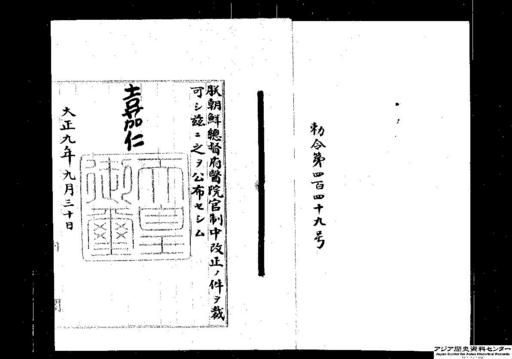 勅令第四百四十九号
朕朝鮮總督府醫院官制中改正ノ件ヲ裁
可シ茲ニ之ヲ公布セシム
嘉仁
天皇
御璽
大正九年九月三十日
アジア歴史資料センター
Japan Center for Asian Historical Records